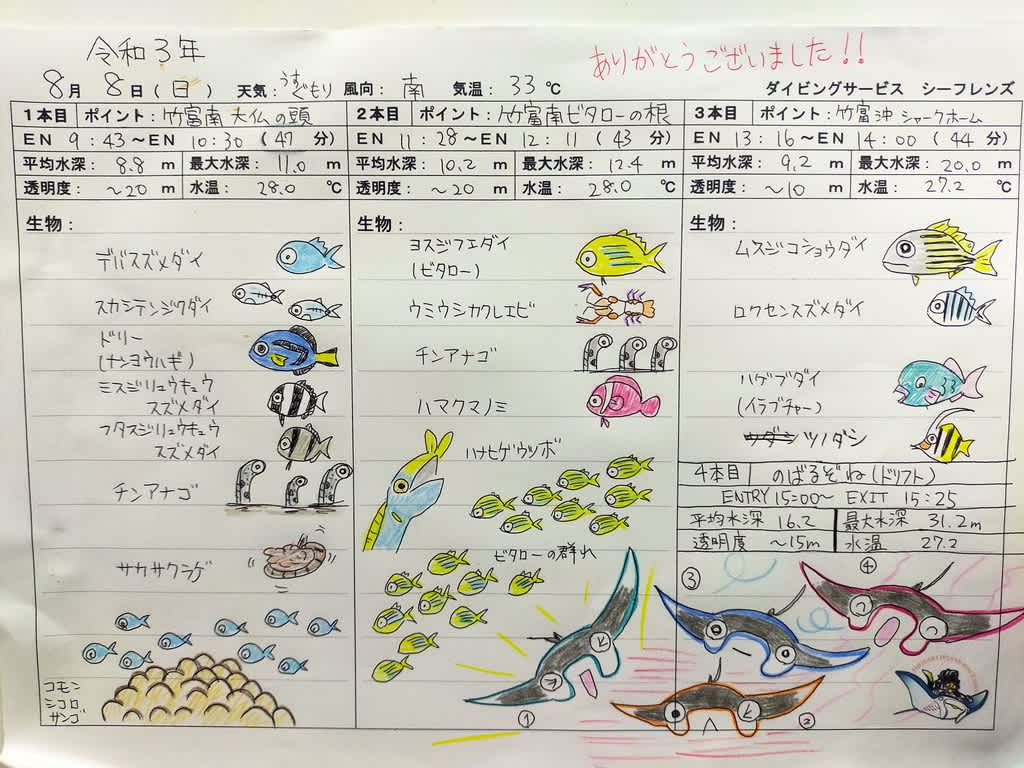 令和3年
ありがとうございました!!
8月 8日(日) 天気:うすぐもり 風向:南 気温:33℃ ダイビングサービス シーフレンズ
1本目 ポイント:竹富南 大仏の頭
EN 9:43~EN 10:30(47分)
平均水深:8.8m 最大水深:11.0m
透明度:~20m 水温:28.0℃
生物:
デバスズメダイ
スカシテンジクダイ
ドリー
(ナンヨウハギ)
ミスジリュウキュウ
スズメダイ
フタスジリュウキュウ
スズメダイ
チンアナゴ
サカサクラゲ
コモン
シコロ
サンゴ
2本目 ポイント:竹富南ビタローの根
EN 11:28~EN 12:11(43分)
平均水深:10.2m 最大水深:12.4m
透明度:~20m 水温:28.0℃
生物:
ヨスジフエダイ
(ビタロー)
ウミウシカクレエビ
チンアナゴ
ハマクマノミ
ハナヒゲウツボ
ビタローの群れ
3本目 ポイント:竹富沖 シャークホーム
EN 13:16~EN 14:00(44分)
平均水深:9.2m 最大水深:20.0m
透明度:~10m 水温:27.2℃
生物:
ムスジコショウダイ
ロクセンスズメダイ
ハゲブダイ
(イラブチャー)
ツノダシ
4本目 のばるぞね(ドリフト)
ENTRY 15:00~ EXIT 15:25
平均水深 16.2 最大水深 31.2m
透明度 ~15m 水温 27.2
①
②
③
④